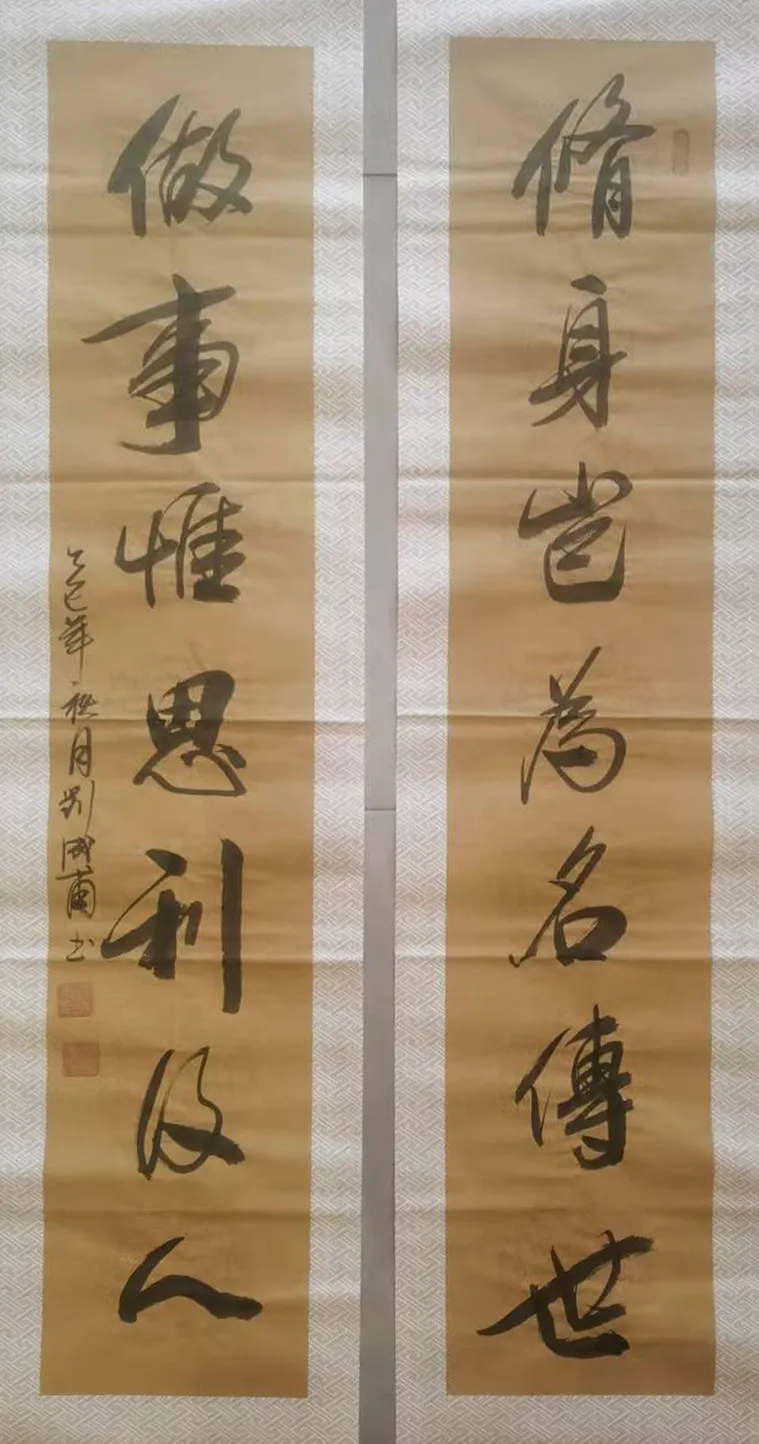 脩身豈為名傳世
做事惟思利及人
乙巳年秋月劉成甫书